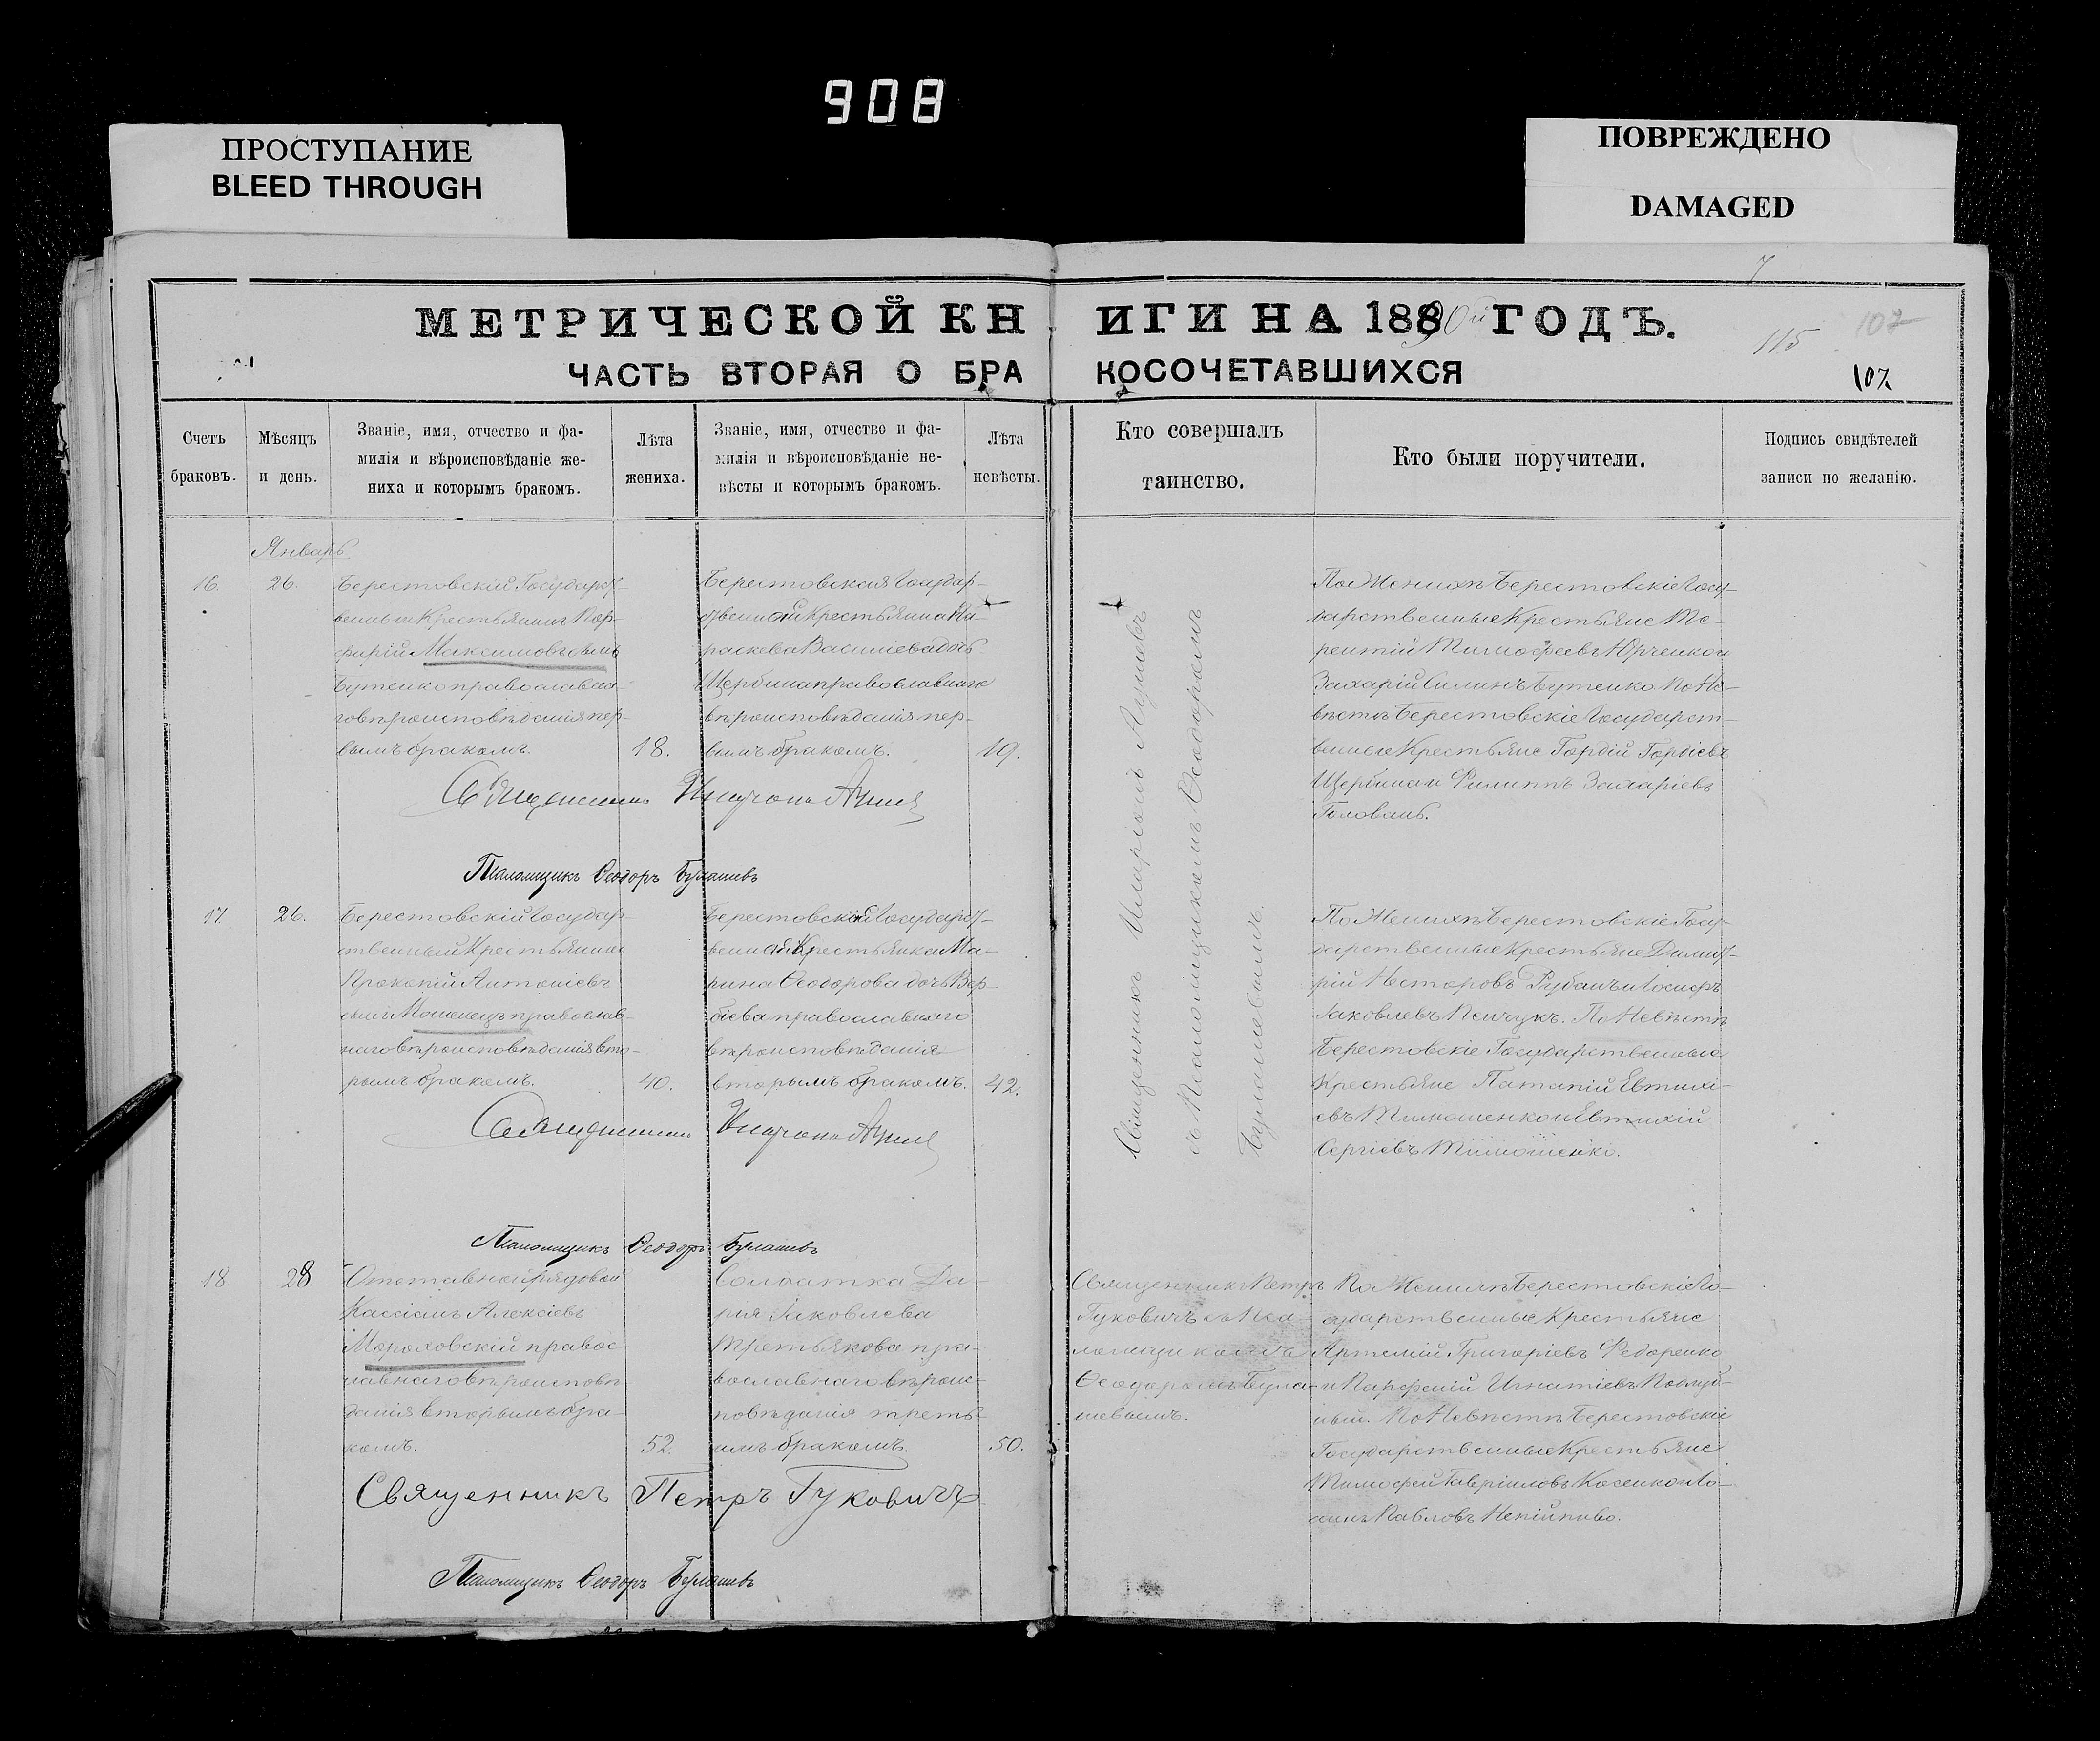 908
ПРОСТУПАНИЕ
BLEED THROUGH
ПОВРЕЖДЕНО
DAMAGED
7
МЕТРИЧЕСКОЙ КНИГИ НА 1890й ГОДЪ.
115
102
107
ЧАСТЬ ВТОРАЯ О БРАКОСОЧЕТАВШИХСЯ
Счетъ
браковъ.
Мѣсяцъ
и день.
Званіе, имя, отчество и фа-
милія и вѣроисповѣданіе же-
ниха и которымъ бракомъ.
Лѣта
жениха.
Званіе, имя, отчество и фа-
милія и вѣроисповѣданіе не-
вѣсты и которымъ бракомъ.
Лѣта
невѣсты.
Кто совершалъ
таинство.
Кто были поручители.
Подпись свидѣтелей
записи по желанію.
Январь
16.
26.
Берестовскій Государст-
венный Крестьянинъ Пор-
фирій Максимовъ сынъ
Бутенко православна-
го вѣроисповѣданія пер-
вымъ бракомъ.
18.
Берестовская Государ-
ственная Крестьянка Па-
раскева Василіева дочь
Щербина православнаго
вѣроисповѣданія пер-
вымъ бракомъ.
19.
Священникъ Иларіонъ
Псаломщикъ Ѳеодоръ Булашевъ
Священникъ Иларіонъ
съ Псаломщикомъ Ѳеодоромъ
Булашевымъ.
По Женихѣ Берестовскіе Госу-
дарственные Крестьяне Те-
рентій Тимофеевъ Юрченко и
Захарій Силинъ Бутенко. По Не-
вѣстѣ Берестовскіе Государст-
венные Крестьяне Гордій Гордіевъ
Щербина и Филиппъ Захаріевъ
Головань.
17.
26.
Берестовскій Государ-
ственный Крестьянинъ
Прокопій Антоніевъ
сынъ православ-
наго вѣроисповѣданія вто-
рымъ бракомъ.
40.
Берестовская Государст-
венная Крестьянка Ма-
рина Ѳеодорова дочь
православнаго
вѣроисповѣданія
вторымъ бракомъ.
42.
Священникъ Иларіонъ
Псаломщикъ Ѳеодоръ Булашевъ
По Женихѣ Берестовскіе Госу-
дарственные Крестьяне Димит-
рій Несторовъ Рубанъ и Іосифъ
Іаковлевъ Пенчукъ. По Невѣстѣ
Берестовскіе Государственные
Крестьяне Патапій Евтихі-
евъ Тимошенко и Евтихій
Сергіевъ Тимошенко.
18.
28.
Отставной рядовой
Кассіанъ Алексіевъ
Мороховскій правос-
лавнаго вѣроисповѣ-
данія вторымъ бра-
комъ.
52.
Солдатка Да-
рія Іаковлева
Третьякова пра-
вославнаго вѣроис-
повѣданія треть-
имъ бракомъ.
50.
Священникъ Петръ
Гуковичъ съ Пса-
ломщикомъ
Ѳеодоромъ Була-
шевымъ.
По Женихѣ Берестовскіе Го-
сударственные Крестьяне
Артемій Григоріевъ Федоренко
и Парфеній Игнатіевъ
По Невѣстѣ Берестовскіе
Государственные Крестьяне
Тимофей Гавріиловъ Косенко и
Павловъ Непійпиво.
Священникъ Петръ Гуковичъ
Псаломщикъ Ѳеодоръ Булашевъ